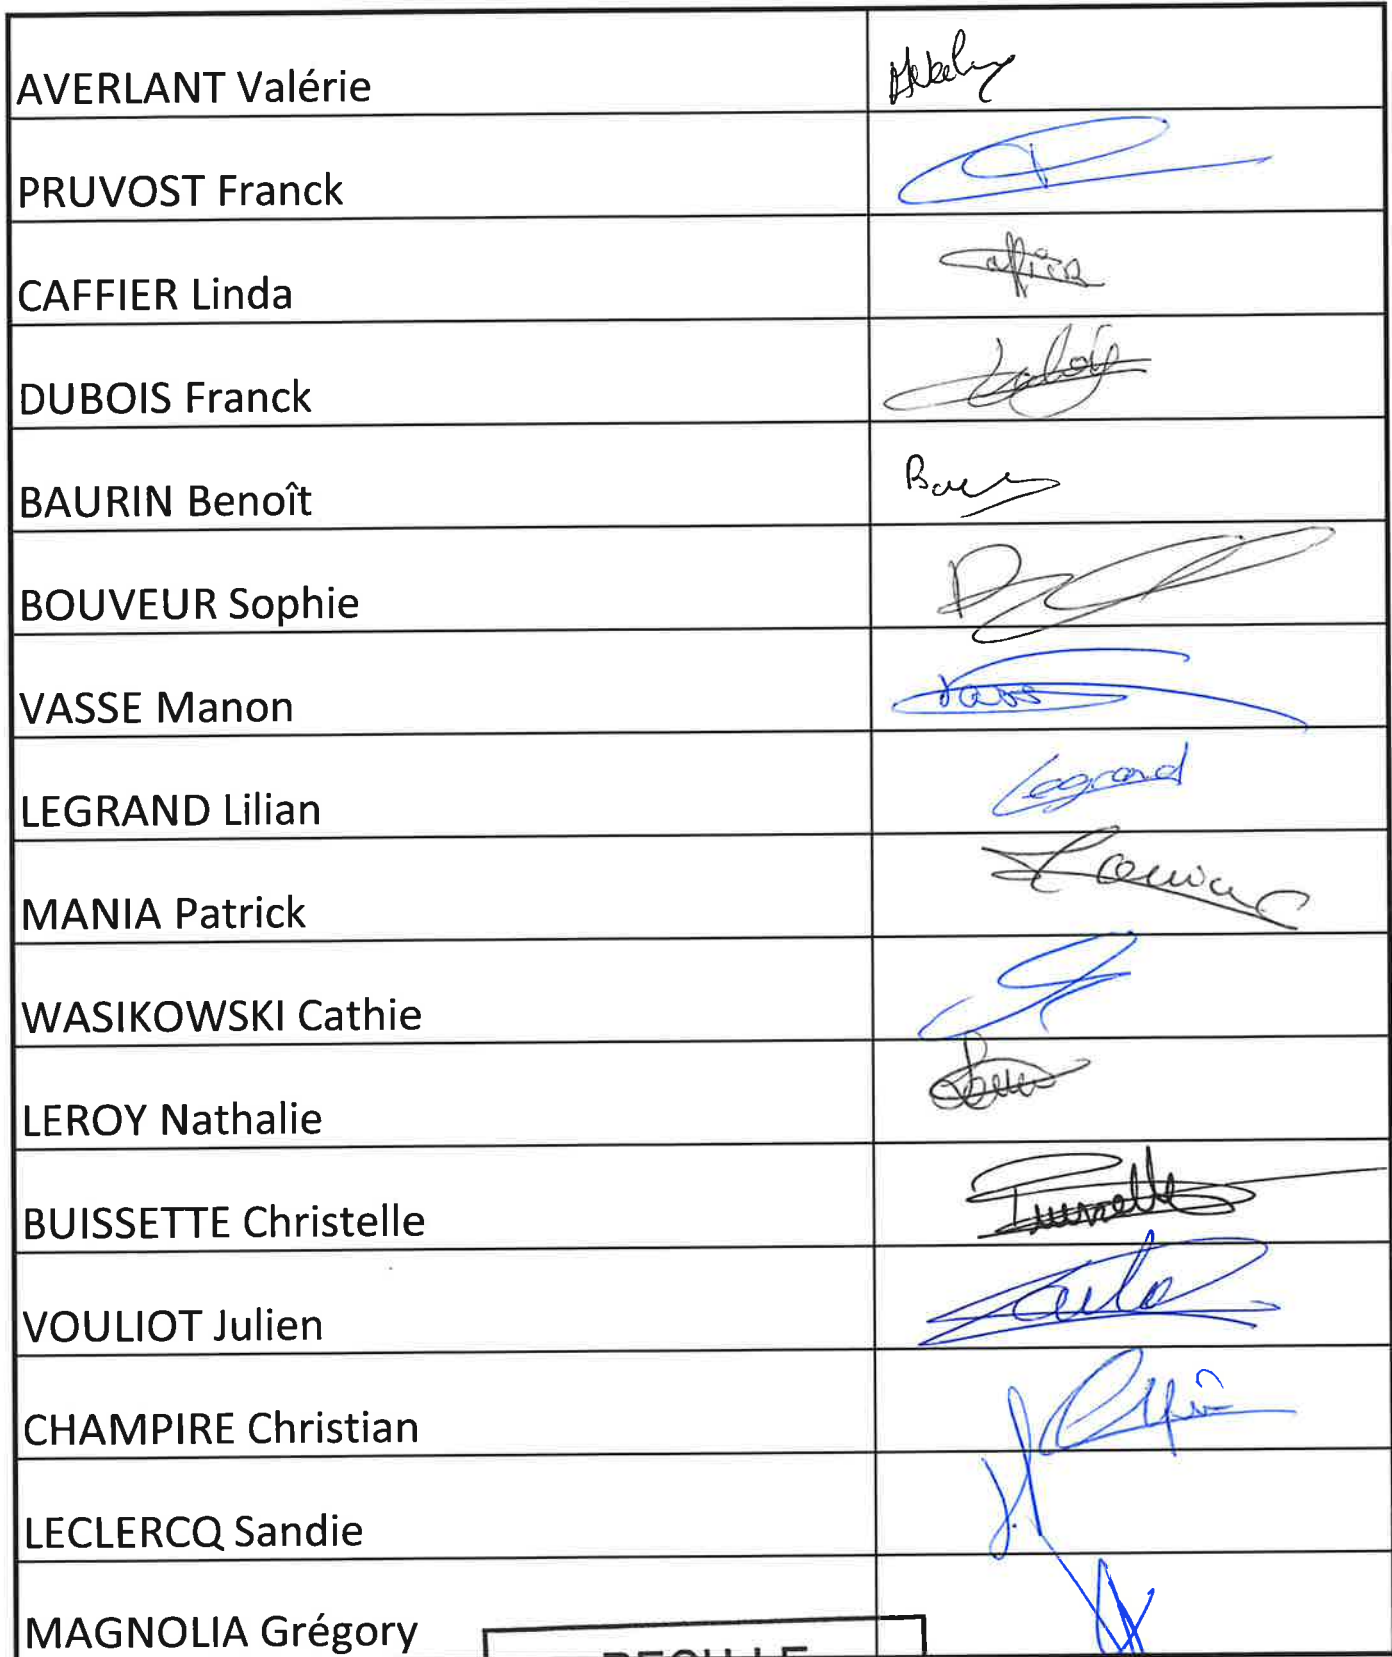 AVERLANT Valérie
PRUVOST Franck
CAFFIER Linda Caffier
DUBOIS Franck
BAURIN Benoît
BOUVEUR Sophie
VASSE Manon
LEGRAND Lilian Legrand
MANIA Patrick
WASIKOWSKI Cathie
LEROY Nathalie
BUISSETTE Christelle
VOULIOT Julien
CHAMPIRE Christian
LECLERCQ Sandie
MAGNOLIA Grégory
REÇU LE